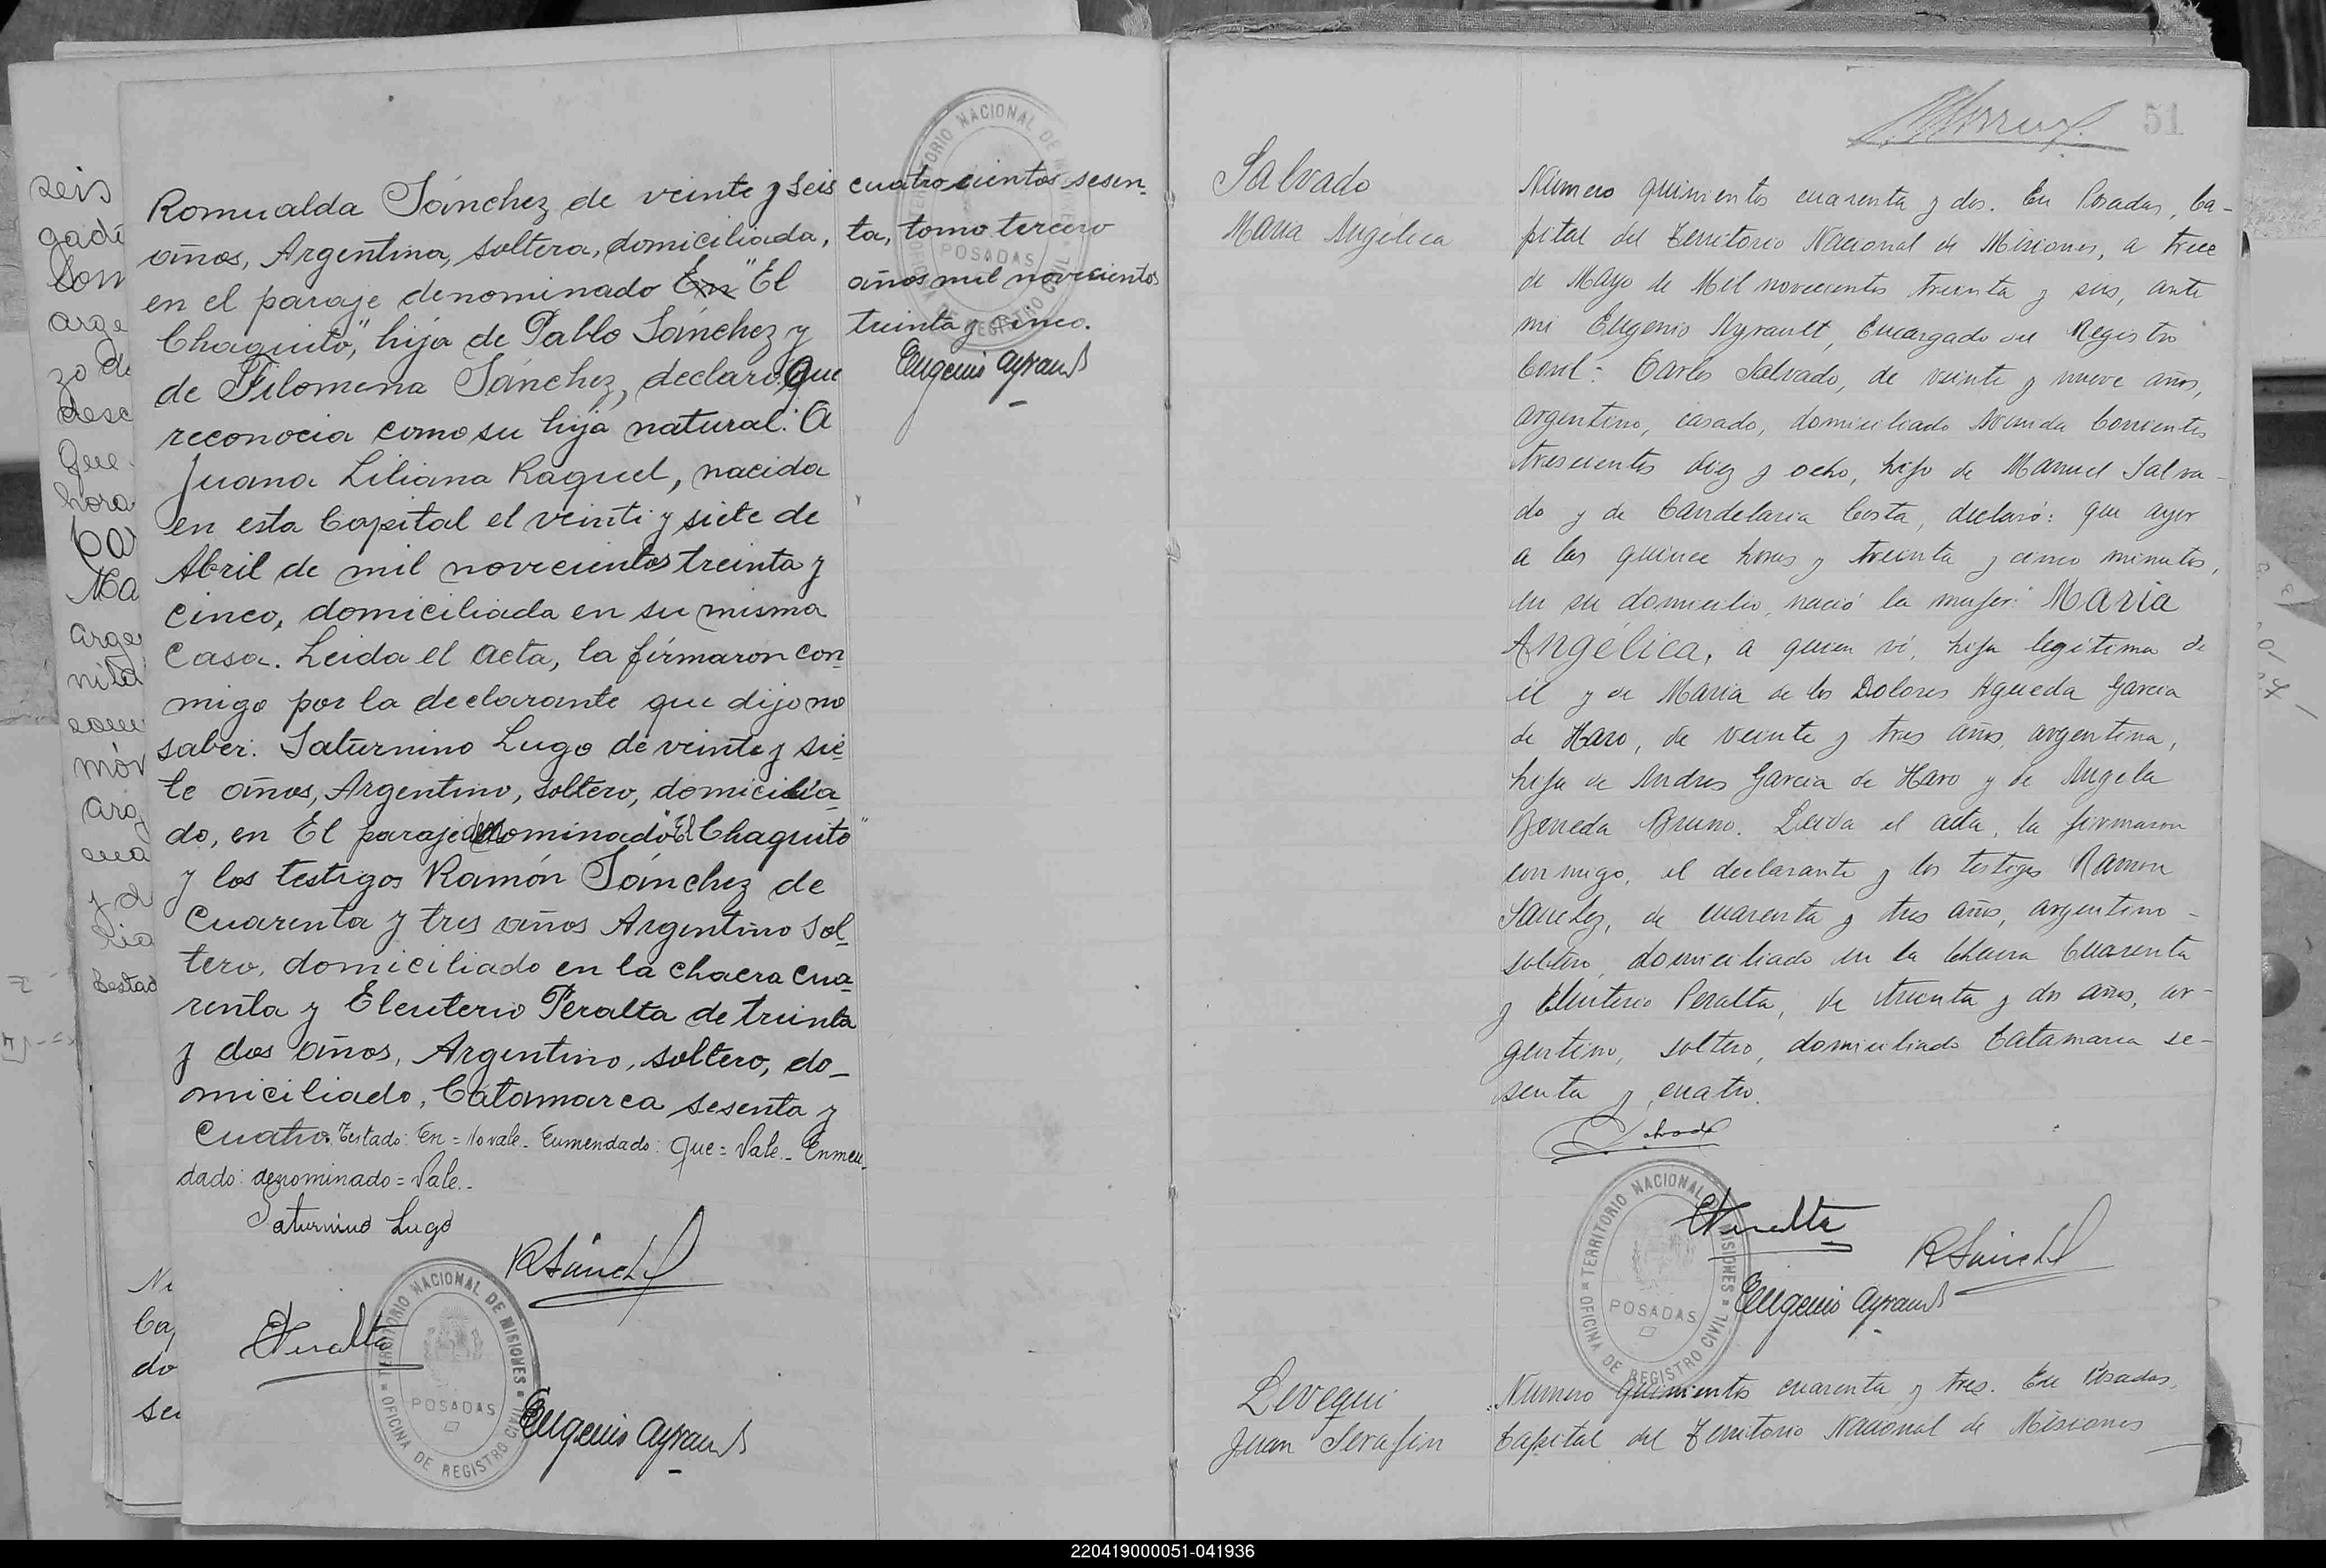 Romualda Sánchez de veinte y seis
años, Argentina, soltera, domiciliada,
en el paraje denominado En "El
Chaquito", hija de Pablo Sánchez y
de Filomena Sánchez, declaró: Que
reconocia como su hija natural: A
Juana Liliana Raquel, nacida
en esta Capital el veinti y siete de
Abril de mil novecientos treinta y
cinco, domiciliada en su misma
Casa. Leida el acta, la firmaron con
migo por la declarante que dijo no
saber: Saturnino Lugo de veinte y sie-
te años, Argentino, soltero, domicilia-
do, en El paraje denominado "El Chaquito"
y los testigos Ramón Sánchez de
Cuarenta y tres años Argentino Sol-
tero, domiciliado en la chacra cua-
renta y Eleuterio Peralta de treinta
y dos años, Argentino, soltero, do-
miciliado, Catamarca sesenta y
Cuatro. Testado: En = No vale. Enmendado: Que = Vale. Enmen-
dado: denominado = Vale.
Saturnino Lugo
R Sánchez
EPeralta
TERRITORIO NACIONAL DE MISIONES
POSADAS
OFICINA DE REGISTRO CIVIL
Eugenio Ayrault
cuatrocientos sesen-
ta, tomo tercero
años mil novecientos
treinta y cinco.
Eugenio Ayrault
TERRITORIO NACIONAL DE MISIONES
POSADAS
OFICINA DE REGISTRO CIVIL
seis
hora
Ma
do
51
Salvado
Maria Angélica
Número quinientos cuarenta y dos. En Posadas, Ca-
pital del Territorio Nacional de Misiones, a trece
de Mayo de Mil novecientos treinta y seis, ante
mi Eugenio Ayrault, Encargado del Registro
Civil: Carlos Salvado, de veinte y nueve años,
argentino, casado, domiciliado Avenida Corrientes
trescientos diez y ocho, hijo de Manuel Salva-
do y de Candelaria Costa, declaró: que ayer
a las quince horas y treinta y cinco minutos,
en su domicilio, nació la mujer: Maria
Angélica, a quien vi, hija legitima de
él y de Maria de los Dolores Agueda Garcia
de Haro, de veinte y tres años, argentina,
hija de Andres Garcia de Haro y de Angela
Bruno. Leida el acta, la firmaron
conmigo, el declarante y los testigos Ramon
Sanchez, de cuarenta y tres años, argentino
soltero, domiciliado en la Chacra Cuarenta
y Eleuterio Peralta, de treinta y dos años, ar-
gentino, soltero, domiciliado Catamarca se-
senta y cuatro.
Salvado
EPeralta
R Sánchez
Eugenio Ayrault
TERRITORIO NACIONAL DE MISIONES
POSADAS
OFICINA DE REGISTRO CIVIL
Levequi
Juan Serafin
Número quinientos cuarenta y tres. En Posadas,
Capital del Territorio Nacional de Misiones
220419000051-041936